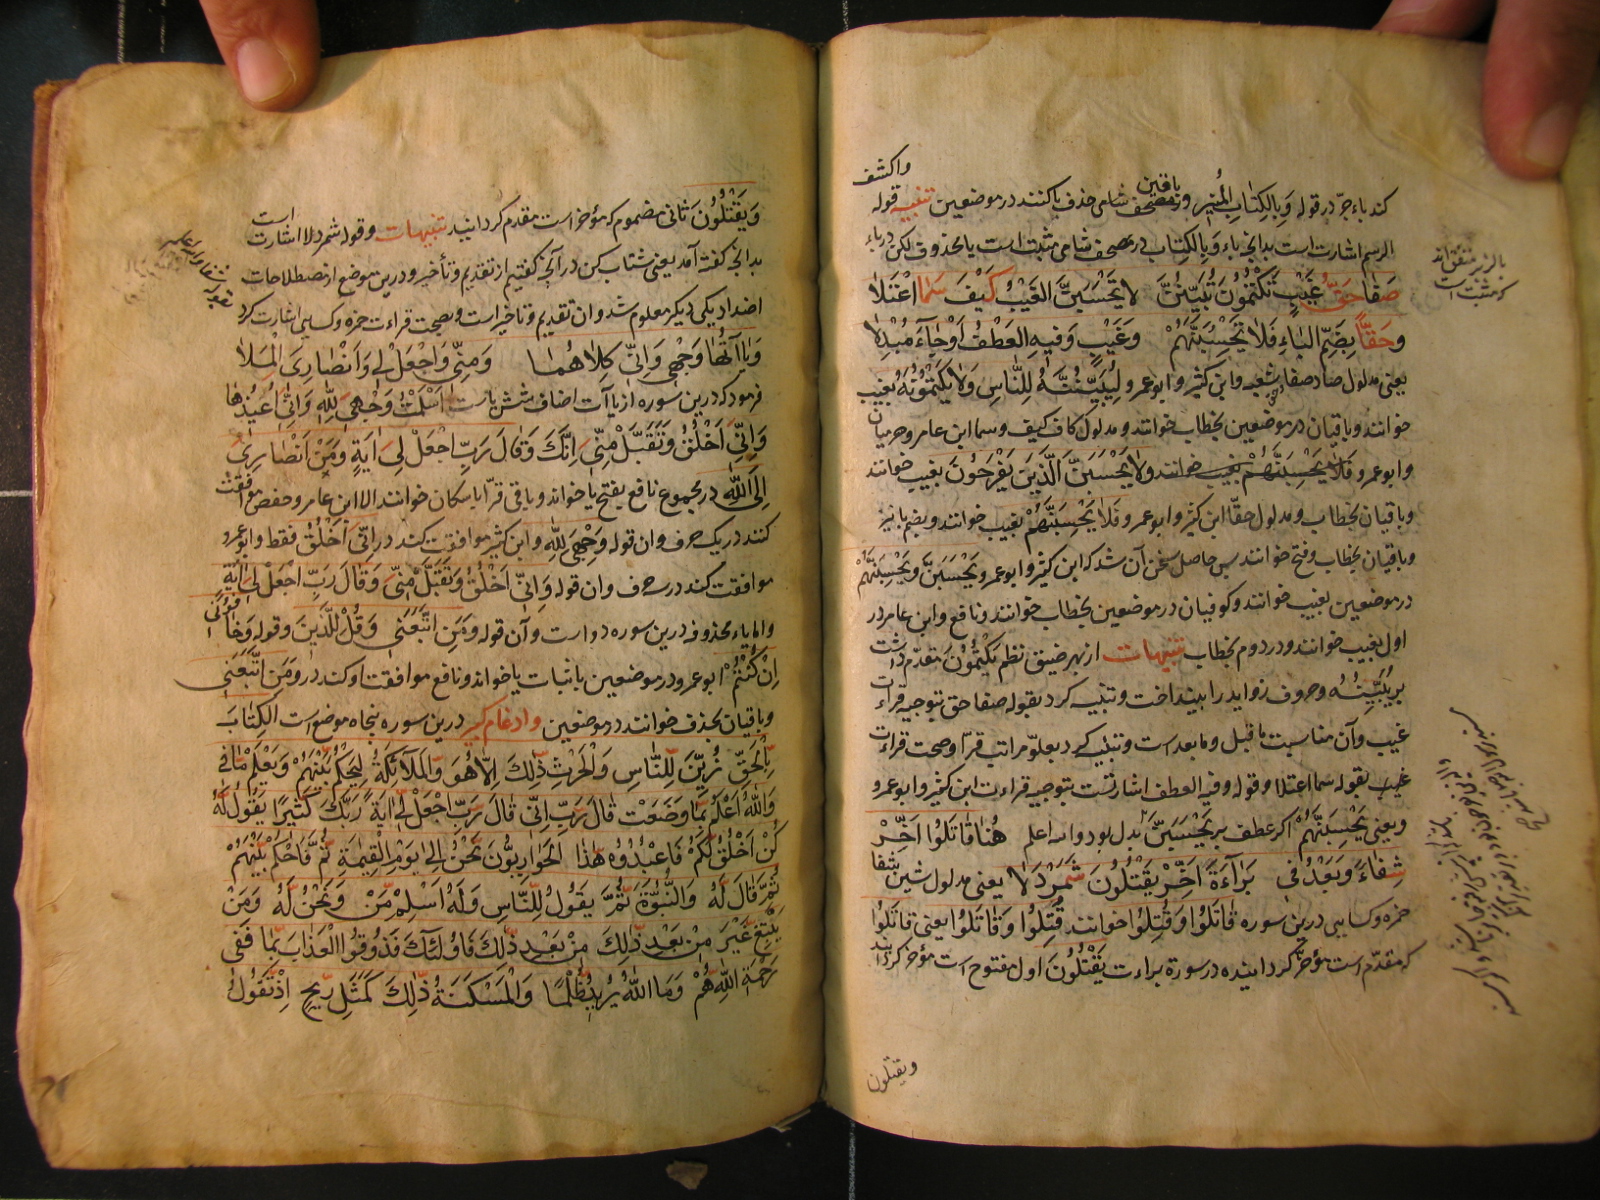 واکشف
کند باء جرّ در قوله وَبِالكِتَابِ الْمُنِيرِ و در مصحف شامی حذف یا کنند در موضعین تنبیه قوله
باقین
الرسم اشارت است بدانچه باء وَبِالكِتَاب در مصحف شامی مثبت است یا محذوف لکن در باء
صَفَا حَقُّ غَيْبٍ تَكْتُمُونَ تُبَيِّنُنَّ لَا تَحْسَبَنَّ الغَيْبُ كَيْفَ سَمَا اعْتَلَا
وَحَقًّا بِضَمِّ البَاءِ فَلَا تَحْسَبُنَّهُمْ وَغَيْبٍ وَفِيهِ العَطْفُ اَوْ جَاءَ مُبْدَلَا
یعنی مدلول صاد صفا شعبه و ابن کثیر و ابو عمرو لَيُبَيِّنُنَّهُ لِلنَّاسِ وَلَا يَكْتُمُونَهُ بغیب
خوانند و باقیان در موضعین بخطاب خوانند و مدلول کاف کیف و سما ابن عامر و حرمیان
وابو عمرو وَلَا يَحْسَبَنَّ الَّذِينَ يَفْرَحُونَ بغیب خوانند
و باقیان بخطاب و مدلول حقّا ابن کثیر و ابو عمرو فَلَا يَحْسَبُنَّهُمْ بغیب خوانند و بضم با نیز
و باقیان بخطاب و فتح خوانند پس حاصل سخن آن شد که ابن کثیر و ابو عمرو يَحْسَبَنَّ و يَحْسَبُنَّهُمْ
در موضعین بغیب خوانند و کوفیان در موضعین بخطاب خوانند و نافع و ابن عامر در
اول بغیب خوانند و در دوم بخطاب تنبیهات از بهر ضیق نظم يَكْتُمُونَ مقدّم داشت
بر يُبَيِّنُنَّهُ و حروف زواید را بینداخت و تنبیه کرد بقوله صفا حق بتوجیه قراءت
غیب و آن مناسبت ما قبل و ما بعد است و تنبیه کرد بعلوّ مراتب قرّا و صحت قراءت
غیب بقوله سما اعتلا و قوله و فیه العطف اشارتست بتوجیه قراءت ابن کثیر و ابو عمرو
و یعنی يَحْسَبُنَّهُمْ اکر عطف بر يَحْسَبَنَّ بدل بود والله اعلم هُنَا قَاتَلُوا اَخِّرْ
شِفَاءً وَبَعْدُ فِي بَرَاءَةَ اَخِّرْ يَقْتُلُونَ شَمَرْدَلَا یعنی مدلول شین شفا
حمزه و کسایی درین سوره قَاتَلُوا وَقُتِلُوا خوانند قُتِلُوا وَقَاتَلُوا یعنی قَاتَلُوا
که مقدّم است مؤخّر کردانیده در سورة براءت يَقْتُلُونَ اول مفتوح است مؤخر کردانید
ویقتلون
وَيُقْتَلُونَ ثانی مضموم که مؤخر است مقدم کردانید تنبیهات و قوله شمردلا اشارت است
بدانچه کفته آمد یعنی شتاب کن در آنچه کفتیم از تقدیم و تأخیر و درین موضع از اصطلاحات
اضداد یکی دیکر معلوم شد و ان تقدیم و تاخیر است و بصحت قراءت حمزه و کسایی اشارت کرد
وَيَا آتُهَا وَجْهِي وَاِنِّي كِلَاهُمَا وَمِنِّي وَاجْعَلْ لِي وَاَنْصَارِيَ الْمُلَا
فرمود که درین سوره از یاآت اضاف شش یاست اَسْلَمْتُ وَجْهِيَ لِلّهِ وَاِنِّي اُعِيذُهَا
وَاِنِّي اَخْلُقُ وَتَقَبَّلْ مِنِّي اِنَّكَ وَقَالَ رَبِّ اجْعَلْ لِي اٰيَةً وَمَنْ اَنْصَارِي
اِلَى اللهِ در مجموع نافع بفتح یا خواند و باقی قرّا باسکان خوانند الا ابن عامر و حفص موافقت
کنند در یک حرف و ان قوله وَجْهِيَ لِلّهِ و ابن کثیر موافقت کند در اِنِّي اَخْلُقُ فقط و ابو عمرو
موافقت کند در سه حرف و ان قوله وَاِنِّي اَخْلُقُ وَتَقَبَّلْ مِنِّي وَقَالَ رَبِّ اجْعَلْ لِي اٰيَةً
واما یاء محذوفه درین سوره دو است و آن قوله وَمَنِ اتَّبَعَنِي وَقُلْ لِلَّذِينَ وقوله وَخَافُونِي
اِنْ كُنْتُمْ ابو عمرو در موضعین باثبات یا خواند و نافع موافقت او کند در وَمَنِ اتَّبَعَنِي
و باقیان بحذف خوانند در موضعین وادغام کبیر درین سوره پنجاه موضع است الكِتَابَ
بِالْحَقِّ زُيِّنَ لِلنَّاسِ وَالْحَرْثِ ذٰلِكَ اِلَّا هُوَ وَالْمَلَآئِكَةُ لِيَحْكُمَ بَيْنَهُمْ وَيَعْلَمُ مَا فِي
وَاللهُ اَعْلَمُ بِمَا وَضَعَتْ قَالَ رَبِّ اِنِّي قَالَ رَبِّ اجْعَلْ لِي اٰيَةً رَبَّكَ كَثِيرًا يَقُولُ لَهُ
كُنْ اَخْلُقُ لَكُمْ فَاعْبُدُوهُ هٰذَا الْحَوَارِيُّونَ نَحْنُ اِلٰى يَوْمِ الْقِيٰمَةِ ثُمَّ فَاَحْكُمُ بَيْنَهُمْ
ثُمَّ قَالَ لَهُ وَالنُّبُوَّةَ ثُمَّ يَقُولُ لِلنَّاسِ وَلَهُ اَسْلَمَ مَنْ وَنَحْنُ لَهُ وَمَنْ
يَبْتَغِ غَيْرَ مِنْ بَعْدِ ذٰلِكَ مِنْ بَعْدِ ذٰلِكَ فَاُولٰئِكَ فَذُوقُوا الْعَذَابَ بِمَا فَفِي
رَحْمَةِ اللهِ هُمْ وَمَا اللهُ يُرِيدُ ظُلْمًا وَالْمَسْكَنَةُ ذٰلِكَ كَمَثَلِ رِيحٍ اِذْ تَقُولُ